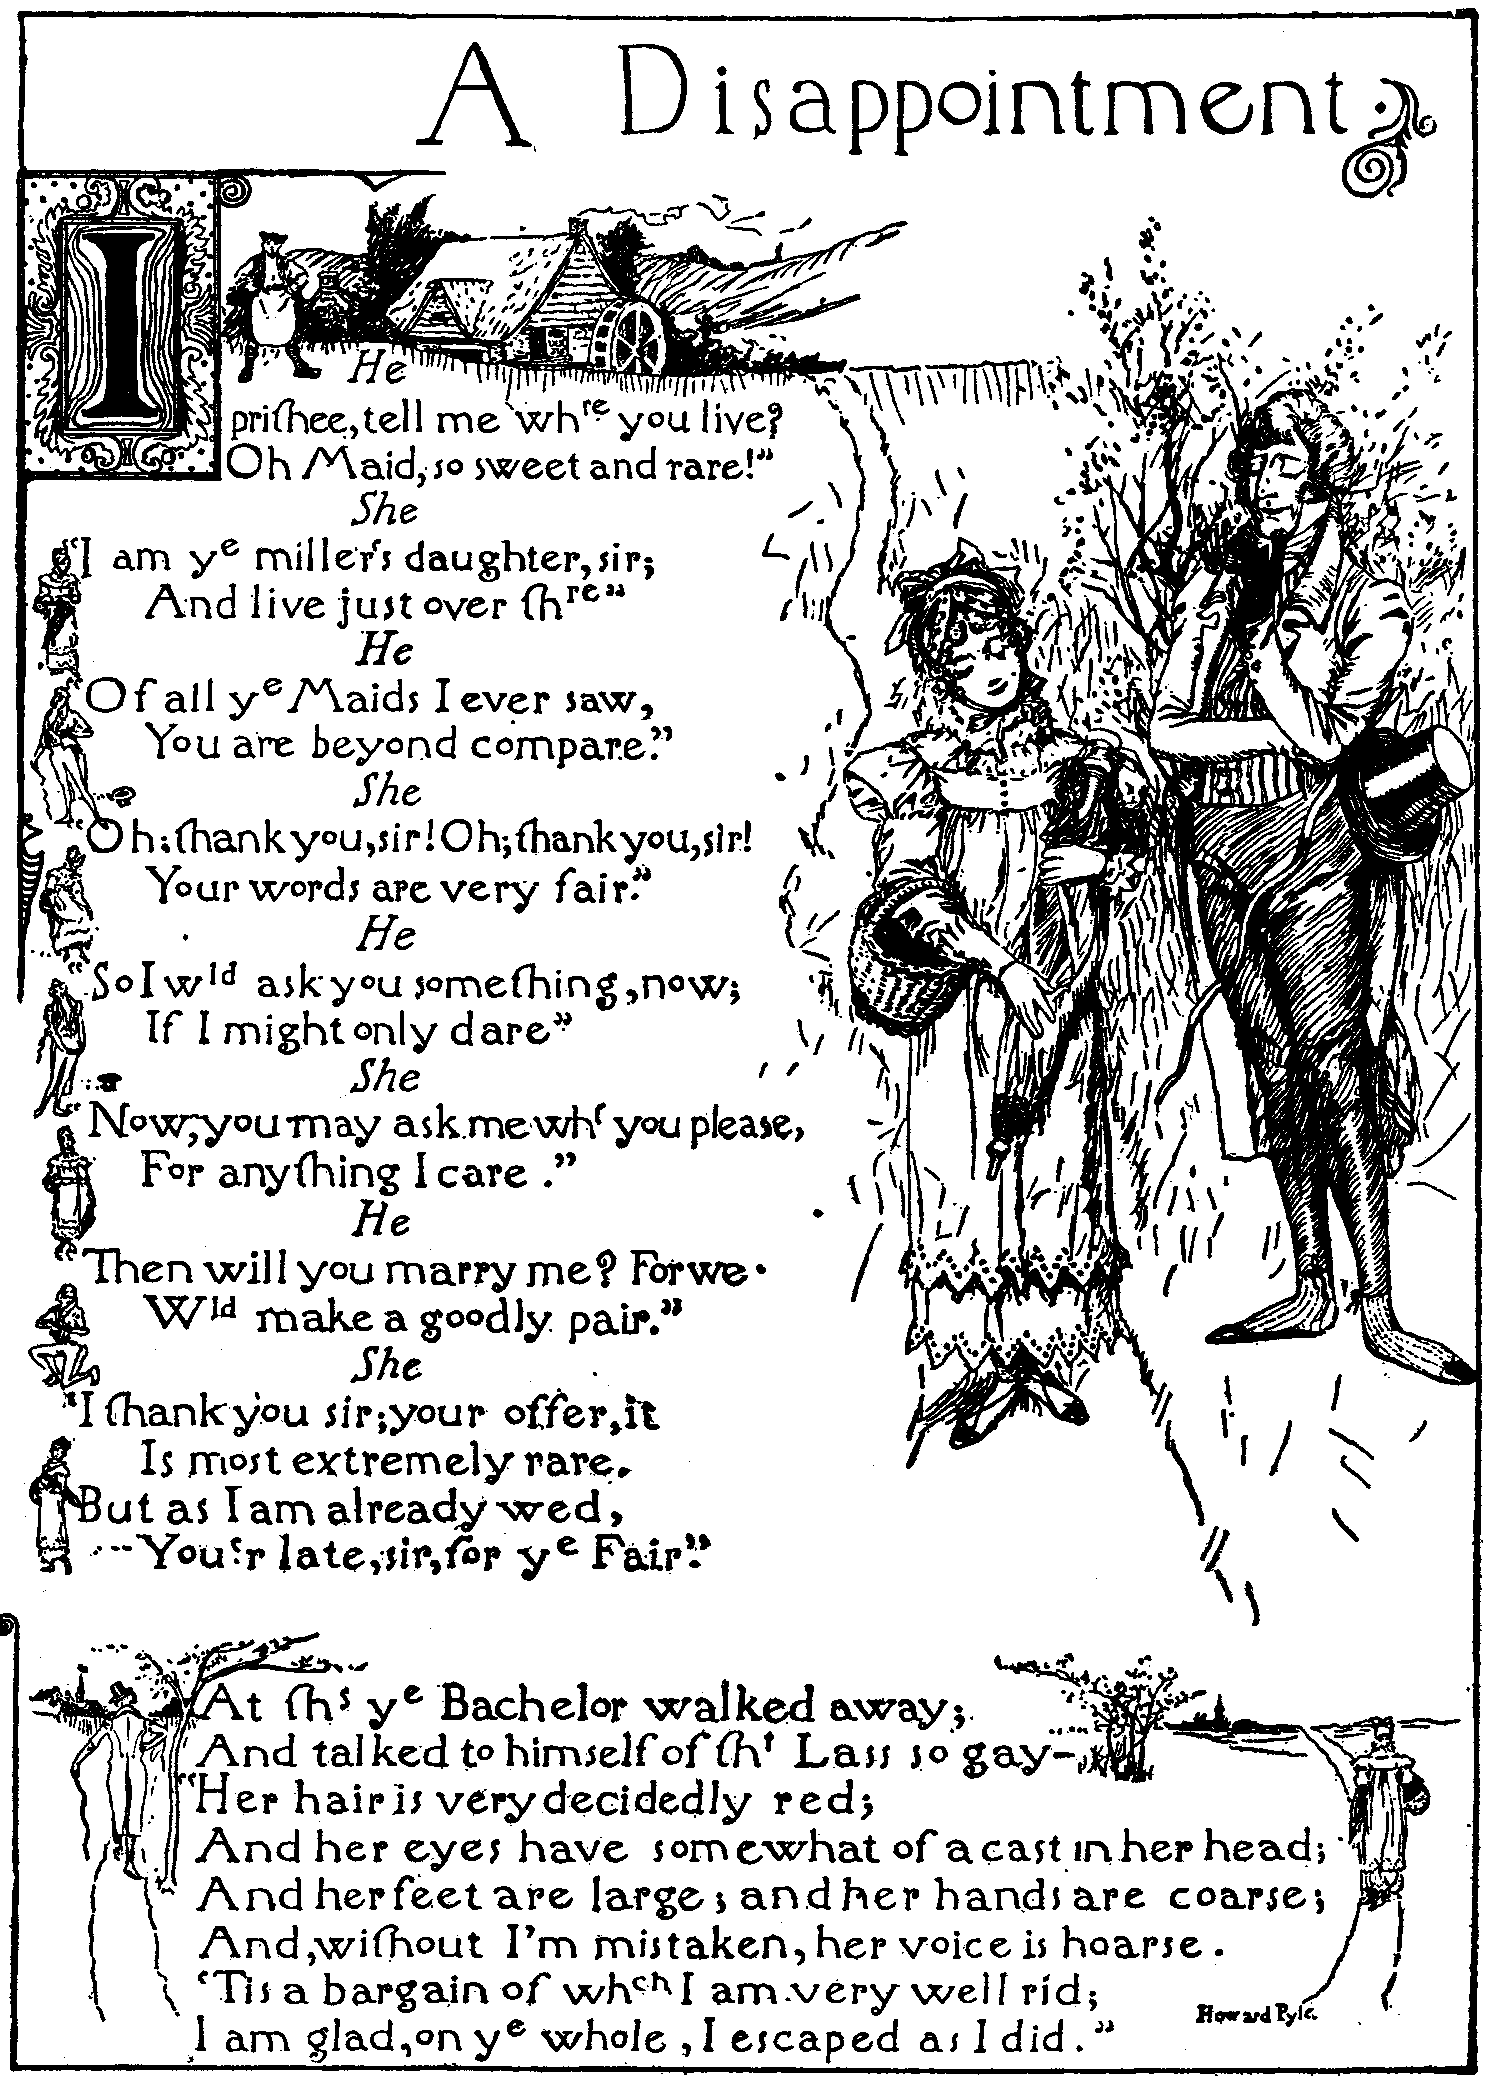 A Disappointment
He
I prithee, tell me whre you live?
Oh Maid, so sweet and rare!"
She
"I am ye miller's daughter, sir;
And live just over thre"
He
Of all ye Maids I ever saw,
You are beyond compare."
She
Oh; thank you, sir! Oh; thank you, sir!
Your words are very fair."
He
So I wld ask you something, now;
If I might only dare"
She
Now, you may ask me wht you please,
For anything I care."
He
Then will you marry me? For we
Wld make a goodly pair."
She
"I thank you sir; your offer, it
Is most extremely rare.
But as I am already wed,
You'r late, sir, for ye Fair."
At ths ye Bachelor walked away;
And talked to himself of tht Lass so gay-
"Her hair is very decidedly red;
And her eyes have somewhat of a cast in her head;
And her feet are large; and her hands are coarse;
And, without I'm mistaken, her voice is hoarse.
'Tis a bargain of whch I am very well rid;
I am glad, on ye whole, I escaped as I did."
Howard Pyle.